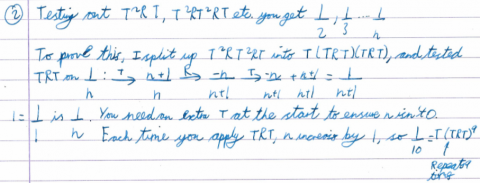 ② Testing out T²RT, T²RT²RT etc. you get 1/2, 1/3 ... 1/n
To prove this, I split up T²RT²RT into T(TRT)(TRT), and tested
TRT on 1/n : T→ n+1/n R→ -n/n+1 T→ -n/n+1 + n+1/n+1 = 1/n+1
1 = 1/1 is 1/n. You need an extra T at the start to ensure n isn't 0.
Each time you apply TRT, n increases by 1, so 1/10 = T(TRT)⁹
Repeats